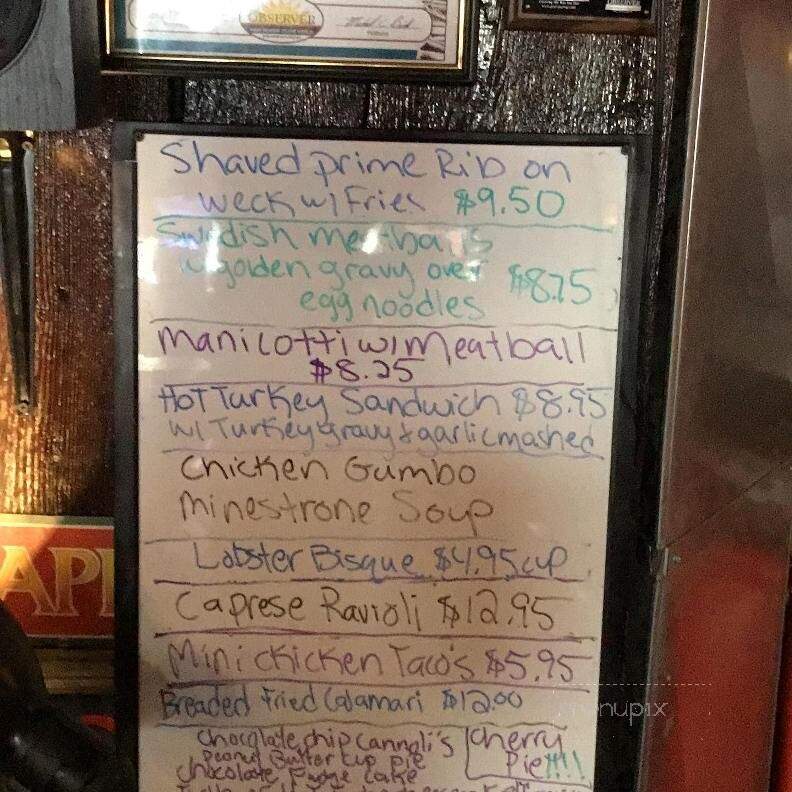 OBSERVER
Shaved prime Rib on
weck w/Fries $9.50
Swedish meatballs
golden gravy over $8.75
egg noodles
Manicotti w/Meatball
$8.25
Hot Turkey Sandwich $8.95
w/ Turkey gravy & garlic mashed
Chicken Gumbo
Minestrone Soup
Lobster Bisque $4.95 cup
Caprese Ravioli $12.95
Mini chicken Taco's $5.95
Breaded Fried Calamari $12.00
Chocolate chip cannoli's
Peanut Butter cup pie
chocolate Fudge cake
Cherry
Pie!!!!
API
menupix